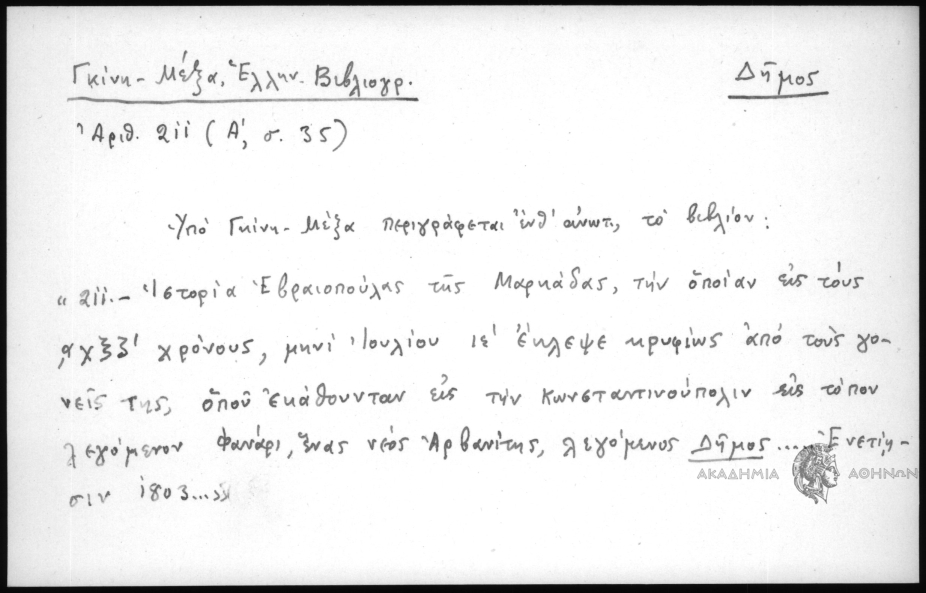 Γκίνη - Μέξα, Ἑλλην. Βιβλιογρ.
Δῆμος
Ἀριθ. 211 (Α', σ. 35)
Ὑπό Γκίνη - Μέξα περιγράφεται ἔνθ' ἀνωτ., τό βιβλίον:
« 211.- Ἱστορία Ἑβραιοπούλας τῆς Μαρκάδας, τήν ὁποίαν εἰς τούς
͵αχξξ' χρόνους, μηνί Ἰουλίου ιε' ἔκλεψε κρυφίως ἀπό τούς γο-
νεῖς της, ὅπου ἐκάθουνταν εἰς τήν Κωνσταντινούπολιν εἰς τόπον
λεγόμενον Φανάρι, ἕνας νέος Ἀρβανίτης, λεγόμενος Δῆμος .... Ἐνετίῃ-
σιν 1803...»
ΑΚΑΔΗΜΙΑ ΑΘΗΝΩΝ